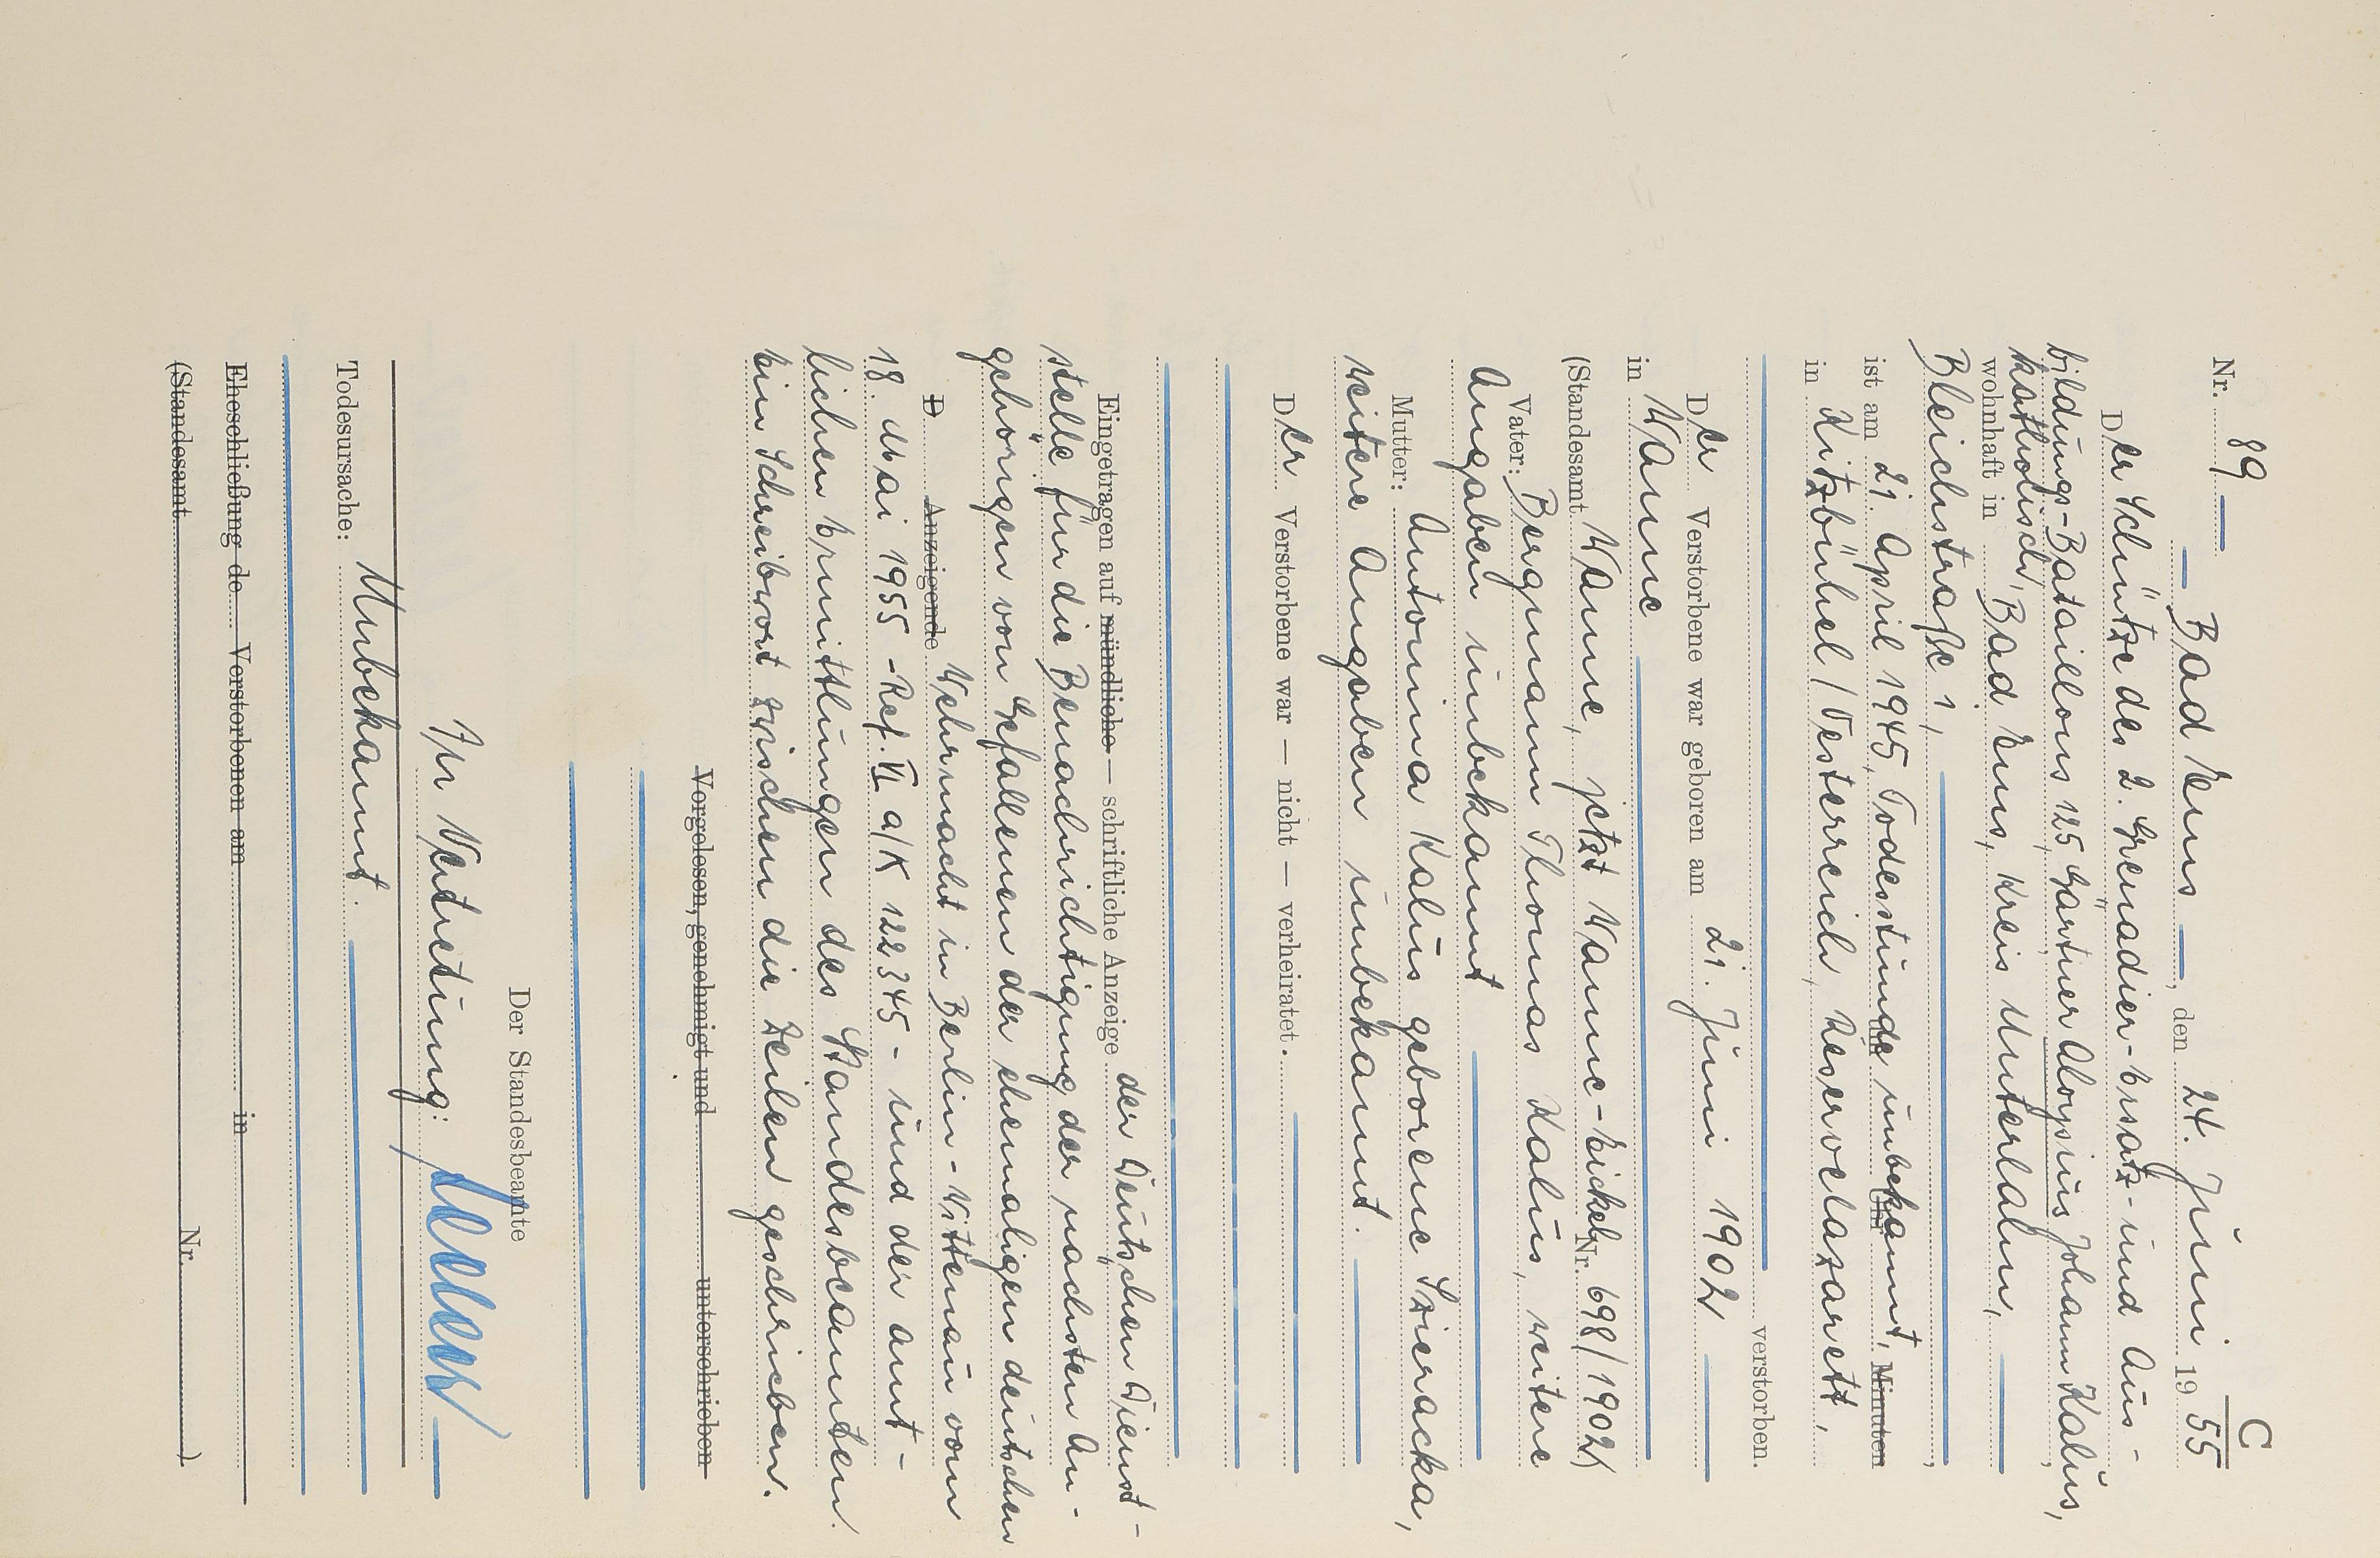 C
Nr. 89
Bad Ems, den 24. Juni 1955
Der Schütze des 2. Grenadier-Ersatz- und Aus-
bildungs-Bataillons 125, Gärtner Aloysius Johann Kalus,
katholisch,
wohnhaft in Bad Ems, Kreis Unterlahn,
Bleichstraße 1,
ist am 21. April 1945, Todesstunde unbekannt, Minuten
in Kitzbühel / Oesterreich, Reservelazarett,
verstorben.
Der Verstorbene war geboren am 21. Juni 1902
in Wanne
(Standesamt Wanne, jetzt Wanne-Eickel, Nr. 698/1902)
Vater: Bergmann Thomas Kalus, weitere
Angaben unbekannt
Mutter: Antonina Kalus geborene Szieracka,
weitere Angaben unbekannt.
Der Verstorbene war — nicht — verheiratet.
Eingetragen auf mündliche — schriftliche Anzeige der Deutschen Dienst-
stelle für die Benachrichtigung der nächsten An-
gehörigen von Gefallenen der ehemaligen deutschen
D Anzeigende Wehrmacht in Berlin-Wittenau vom
18. Mai 1955 -Ref. VI a/K 122345- und der amt-
lichen Ermittlungen des Standesbeamten.
Ein Schreibwort zwischen die Zeilen geschrieben.
Vorgelesen, genehmigt und unterschrieben
Der Standesbeamte
In Vertretung:
Todesursache: Unbekannt.
Eheschließung de Verstorbenen am in
(Standesamt Nr. )